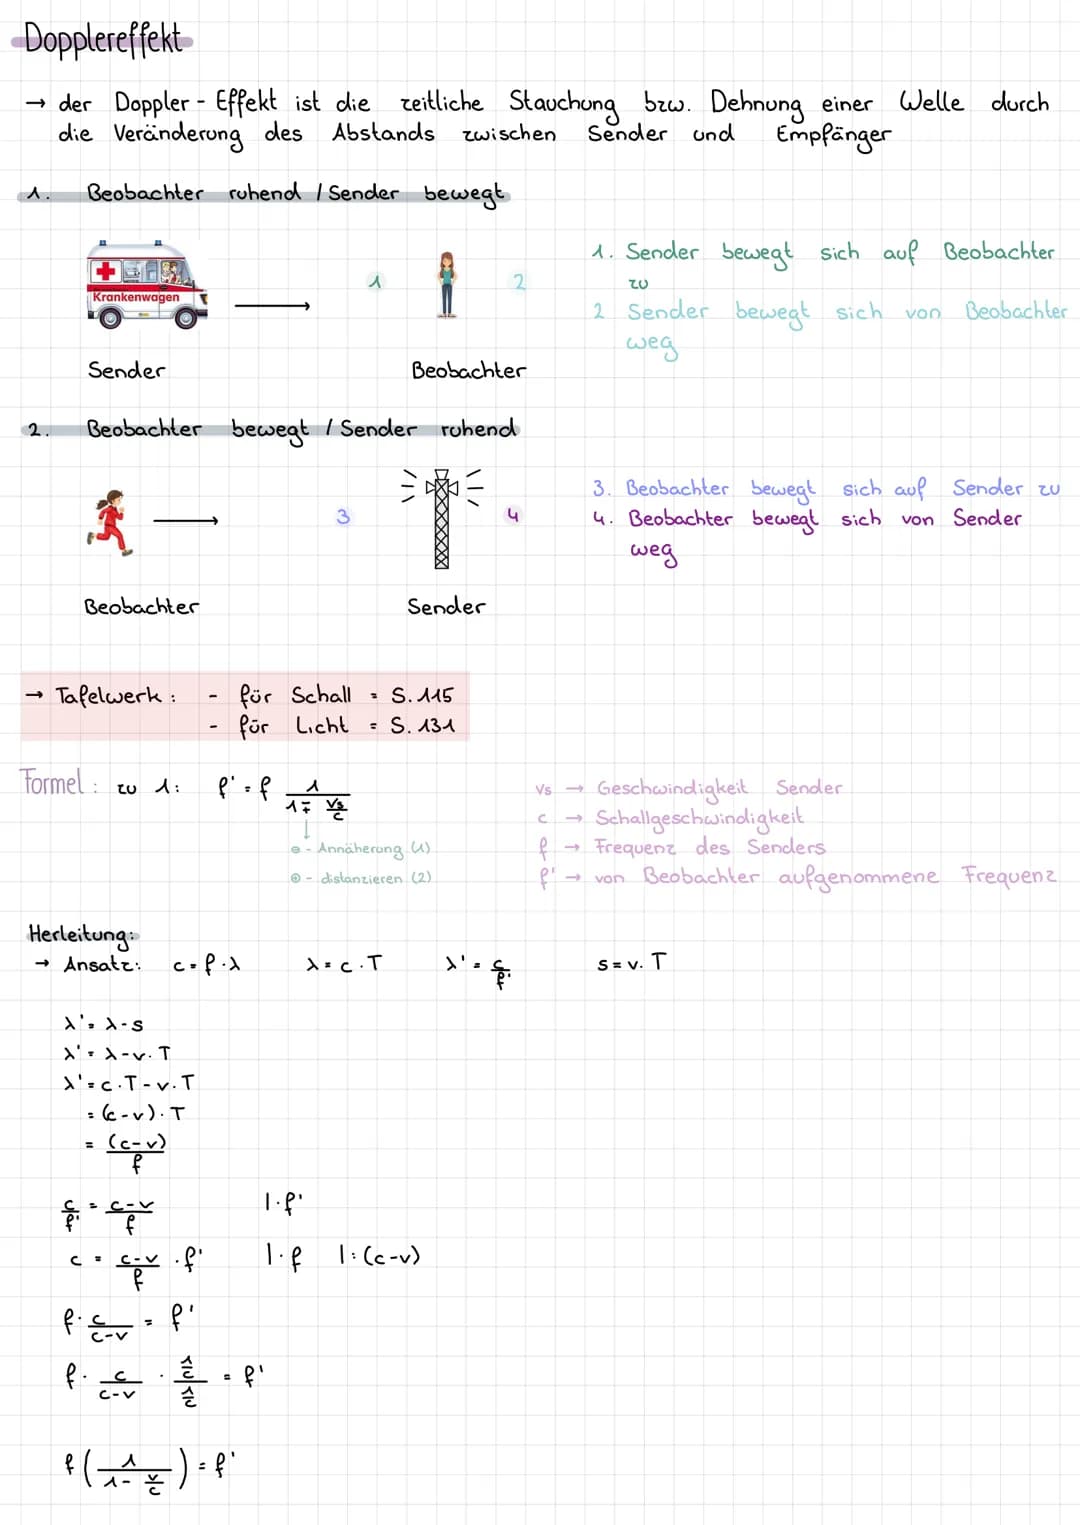 Dopplereffekt
→ der Doppler - Effekt ist die zeitliche Stauchung bzw. Dehnung einer Welle durch
die Veränderung des Abstands zwischen Sender und Empfänger
1. Beobachter ruhend / Sender bewegt
Krankenwagen
1
2
Sender
Beobachter
1. Sender bewegt sich auf Beobachter
zu
2 Sender bewegt sich von Beobachter
weg
2. Beobachter bewegt / Sender ruhend
3
4
Beobachter
Sender
3. Beobachter bewegt sich auf Sender zu
4. Beobachter bewegt sich von Sender
weg
→ Tafelwerk : - für Schall = S. 115
- für Licht = S. 131
Formel : zu 1: f' = f 1/(1 ∓ vs/c)
↓
⊖ - Annäherung (1)
⊕ - distanzieren (2)
vs → Geschwindigkeit Sender
c → Schallgeschwindigkeit
f → Frequenz des Senders
f' → von Beobachter aufgenommene Frequenz
Herleitung:
→ Ansatz: c = f · λ λ = c · T λ' = c/f' s = v. T
λ' = λ - s
λ' = λ - v. T
λ' = c · T - v. T
= (c - v) · T
= (c - v)/f
c/f' = c-v/f | · f'
c = c-v/f · f' | · f | : (c-v)
f · c/c-v = f'
f · c/c-v · (1/c)/(1/c) = f'
f (1/(1 - v/c)) = f'